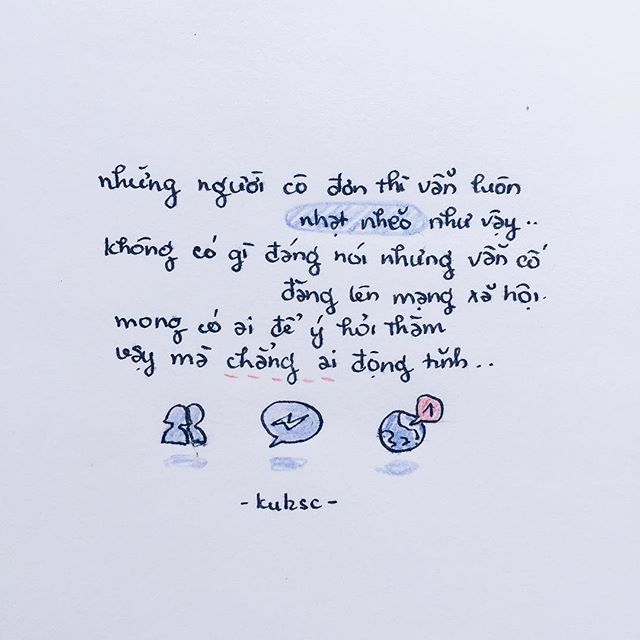 những người cô đơn thì vẫn luôn
nhạt nhẽo như vậy..
không có gì đáng nói nhưng vẫn cố
đăng lên mạng xã hội.
mong có ai để ý hỏi thăm
vậy mà chẳng ai động tĩnh..
1
-kulzsc-